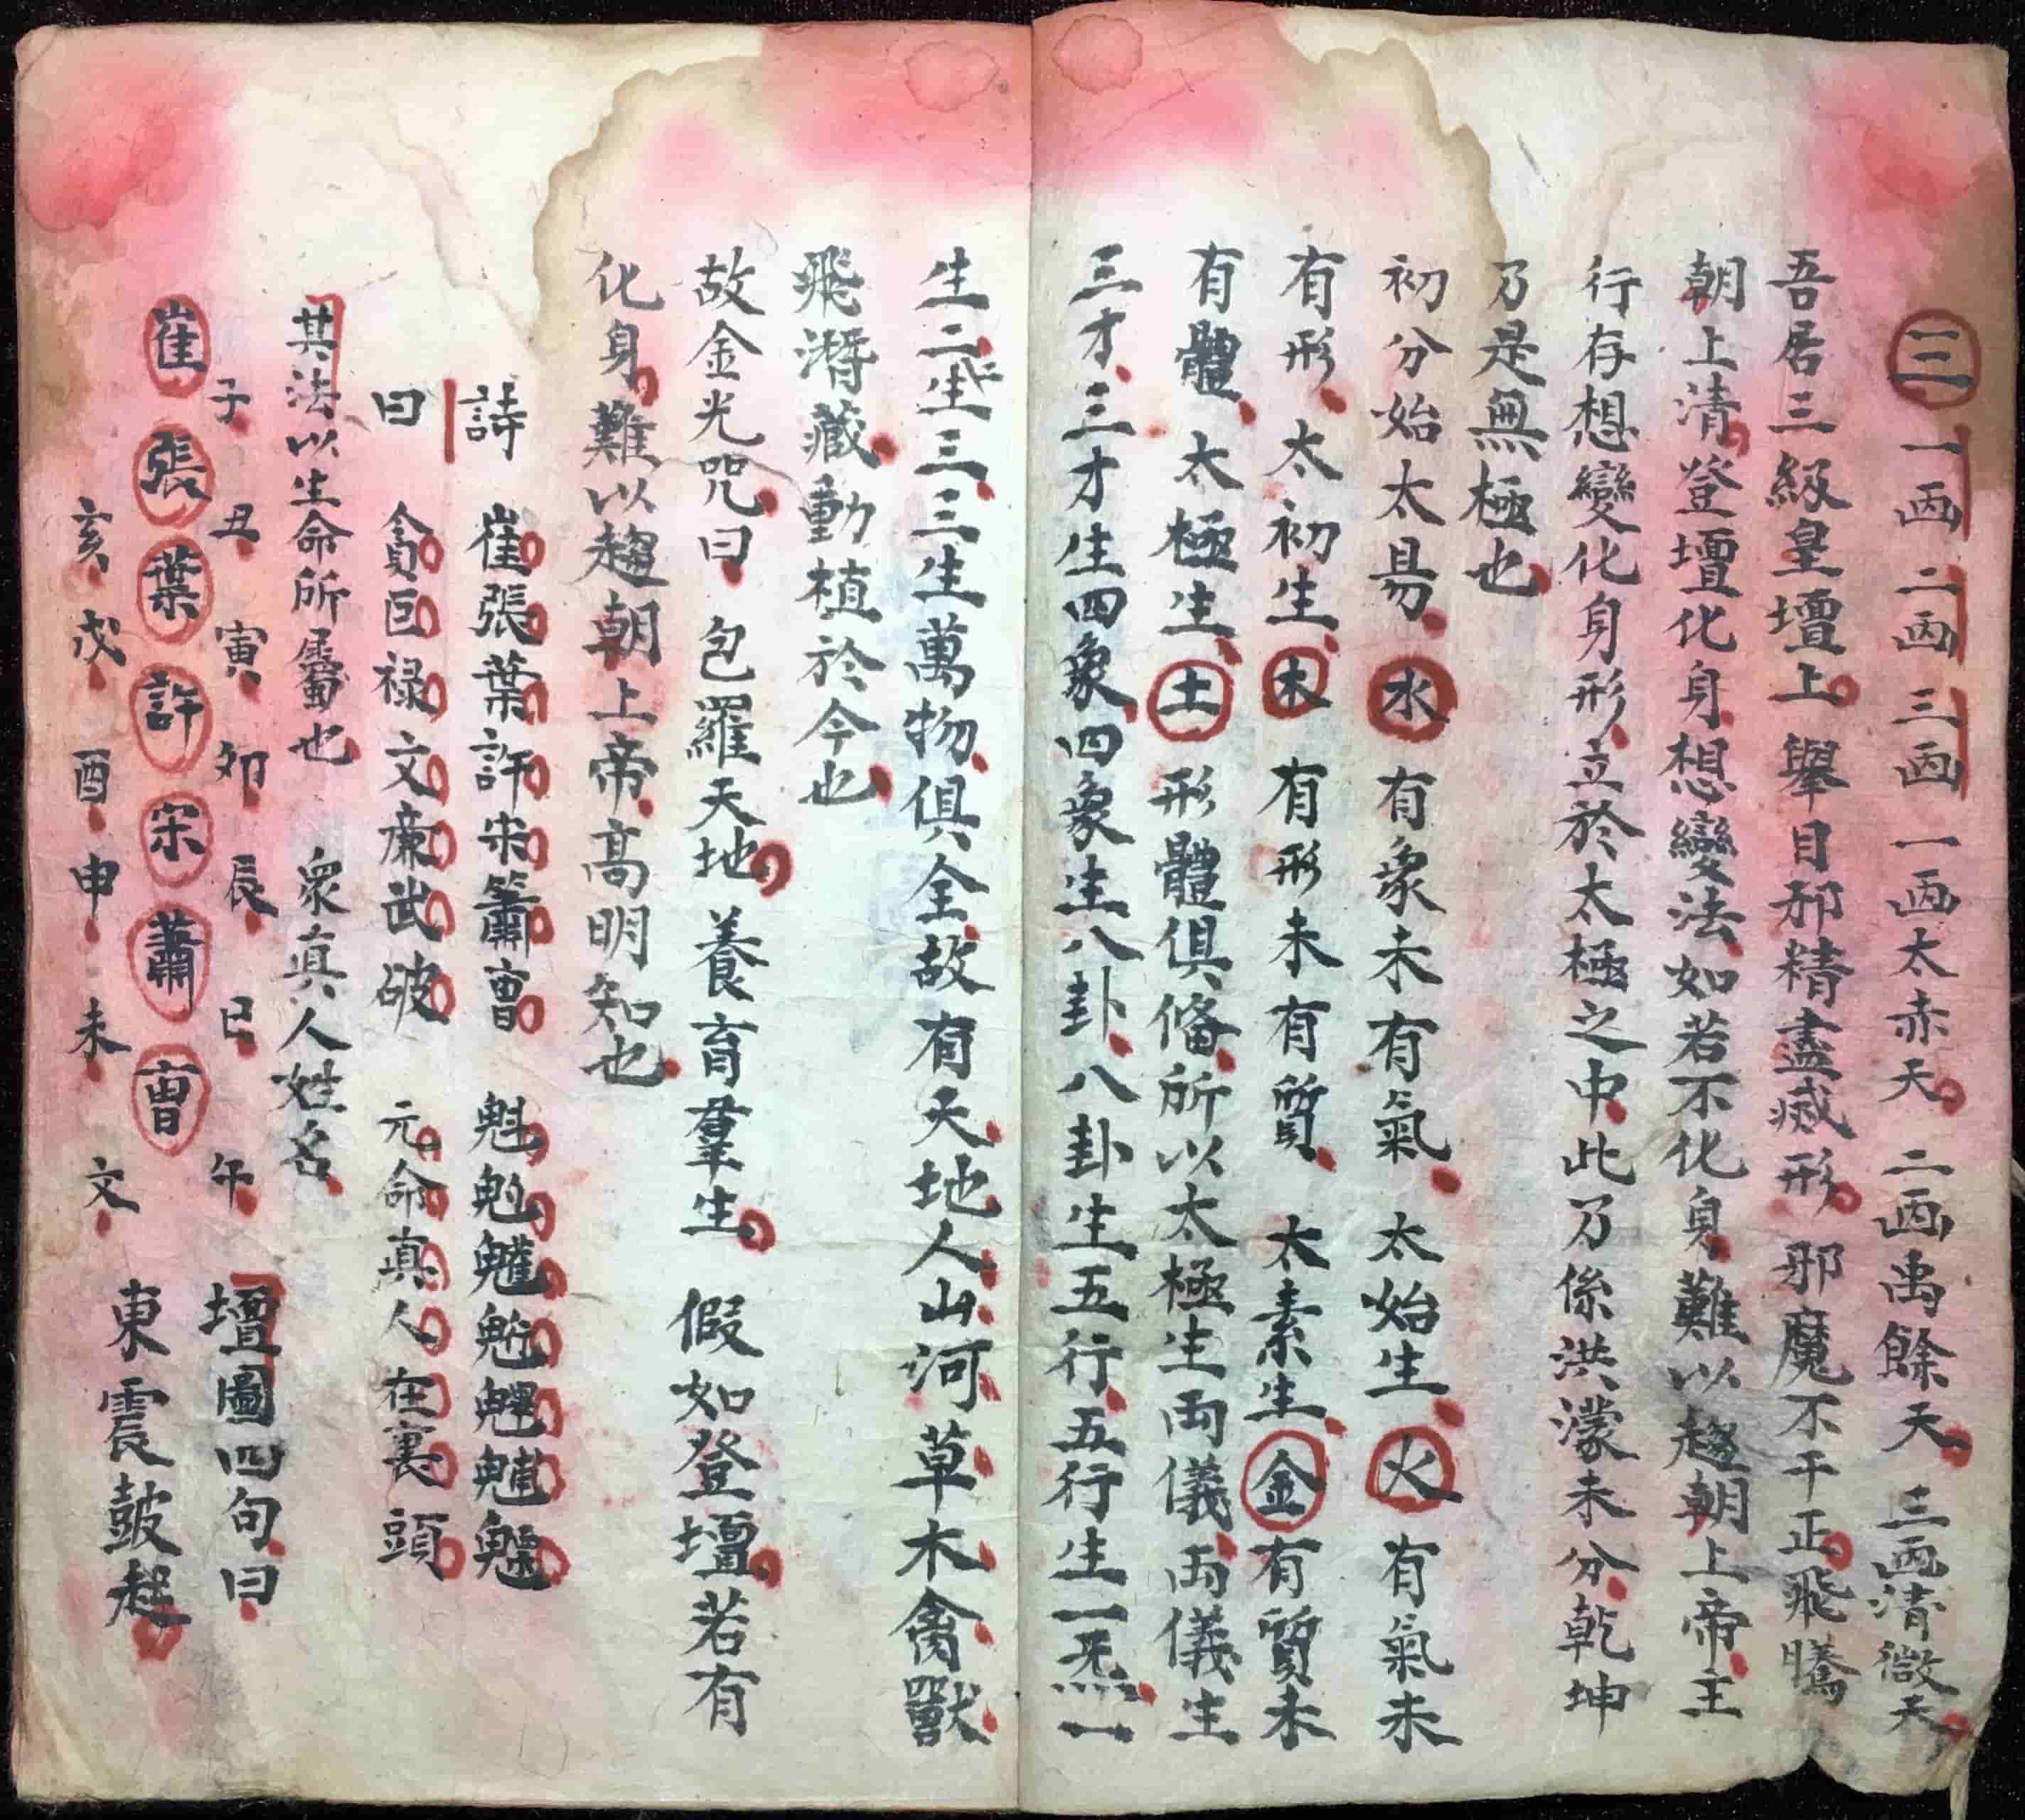 三 一画 二画 三画 一画太赤天 二画禹餘天 三画清微天
吾居三級皇壇上 舉目邪精盡滅形 邪魔不干正飛騰
朝上清登壇化身想變法如若不化身難以趨朝上帝主
行存想變化身形立於太極之中此乃係洪濛未分乾坤
乃是無極也
初分始太易 水 有象未有氣 太始生 火 有氣未
有形 太初生 木 有形未有質 太素生 金 有質未
有體 太極生 土 形體俱俻所以太極生両儀両儀生
三才三才生四象四象生八卦八卦生五行五行生一炁一
生二二生三三生萬物俱全故有天地人山河草木禽獸
飛潛藏動植於今也
故金光咒曰 包羅天地 養育羣生 假如登壇若有
化身難以趨朝上帝高明知也
詩 崔張葉許宋簫曺 魁𩲃䰢魓魒
曰 貪巨禄文廉武破 元命真人在裏頭
其法以生命所屬也 衆真人姓名
子 丑 寅 夘 辰 巳 午 壇圖四句曰
崔 張 葉 許 宋 蕭 曺 東震鼓起
亥 戌 酉 申 未 文